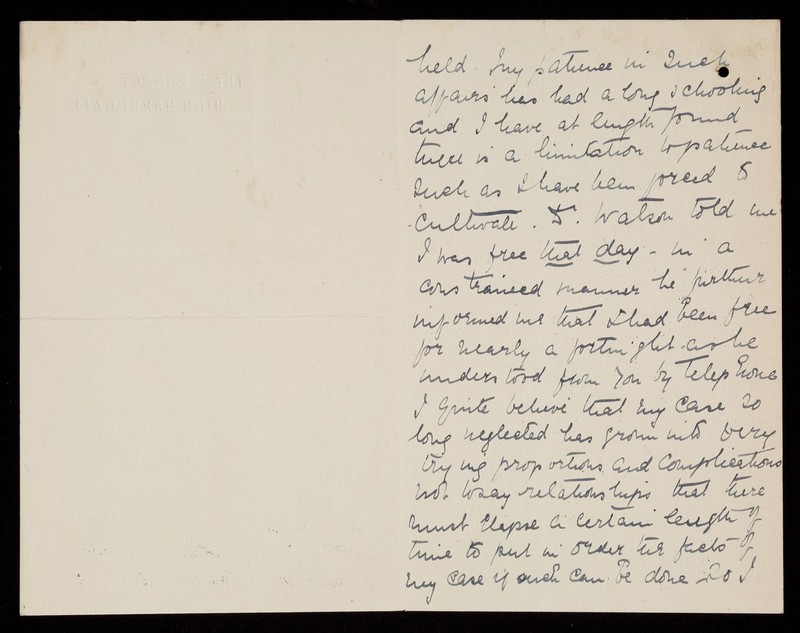 held. My patience in such
affairs has had a long schooling
and I have at length found
there is a limitation to patience
such as I have been forced to
cultivate. Dr. Watson told me
I was free that day - in a
constrained manner he further
informed me that I had been free
for nearly a fortnight as he
understood from you by telephone
I quite believe that my case so
long neglected has grown into very
trying proportions and complications
not to say relationships that there
must elapse a certain length of
time to put in order the facts of
my case if such can be done so I